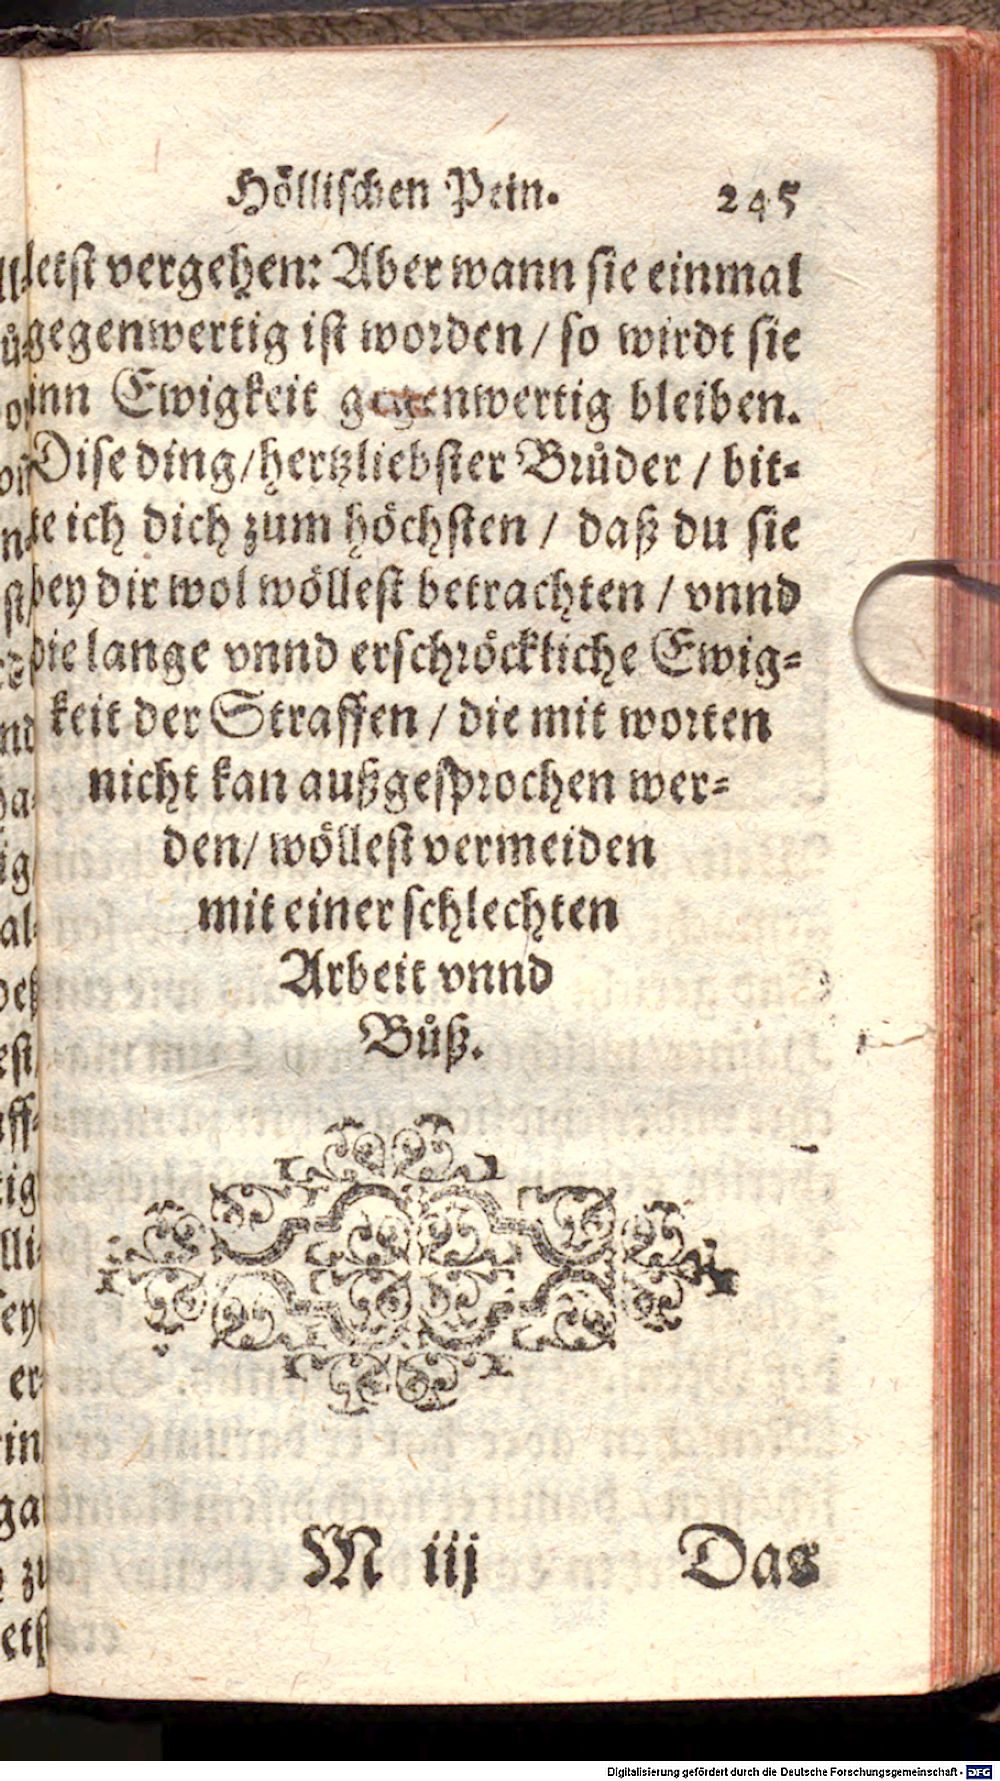 Höllischen Pein. 245
letst vergehen: Aber wann sie einmal
gegenwertig ist worden / so wirdt sie
inn Ewigkeit gegenwertig bleiben.
Dise ding / hertzliebster Brůder / bit-
te ich dich zum höchsten / daß du sie
bey dir wol wöllest betrachten / vnnd
die lange vnnd erschröckliche Ewig-
keit der Straffen / die mit worten
nicht kan außgesprochen wer-
den / wöllest vermeiden
mit einer schlechten
Arbeit vnnd
Bůß.
M iij Das
Digitalisierung gefördert durch die Deutsche Forschungsgemeinschaft - DFG